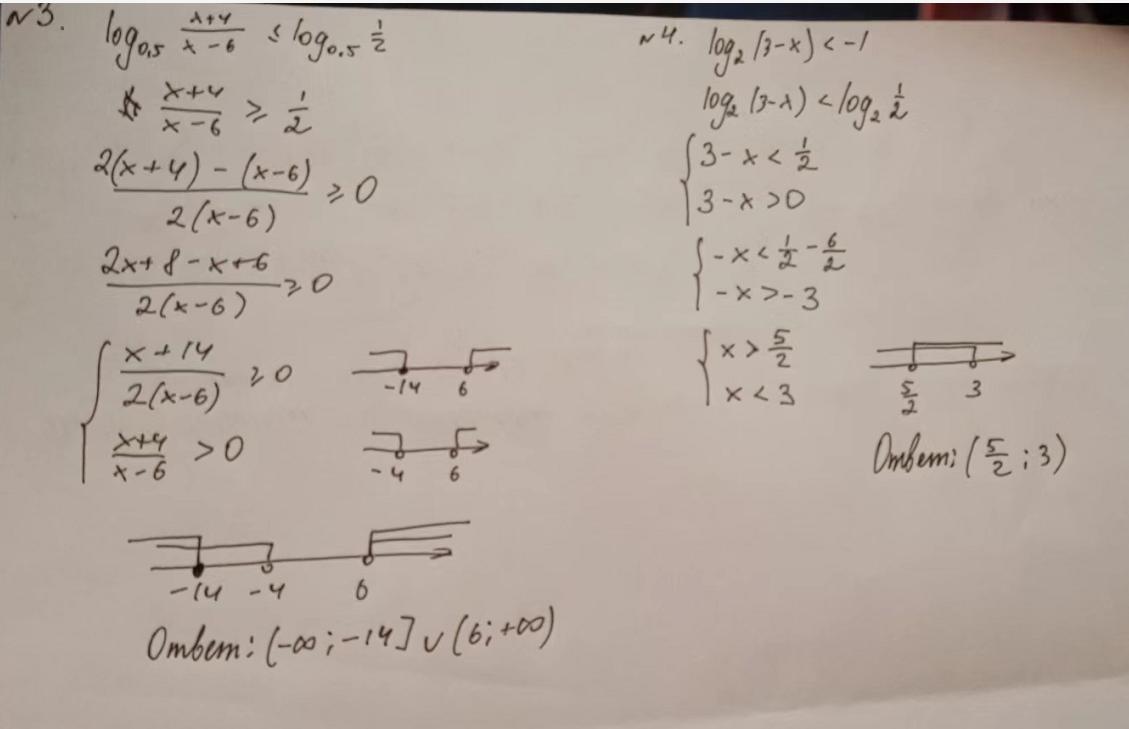 №3.
log₀,₅ (x+4)/(x-6) ≤ log₀.₅ 1/2
(x+4)/(x-6) ≥ 1/2
(2(x+4) - (x-6))/(2(x-6)) ≥ 0
(2x+8-x+6)/(2(x-6)) ≥ 0
{ (x+14)/(2(x-6)) ≥ 0
-14 6
(x+4)/(x-6) > 0
-4 6
-14 -4 6
Ответ: (-∞; -14] ∪ (6; +∞)
№4. log₂(3-x) < -1
log₂(3-x) < log₂ 1/2
{ 3-x < 1/2
3-x > 0
{ -x < 1/2 - 6/2
-x > -3
{ x > 5/2
x < 3
5/2 3
Ответ: (5/2; 3)